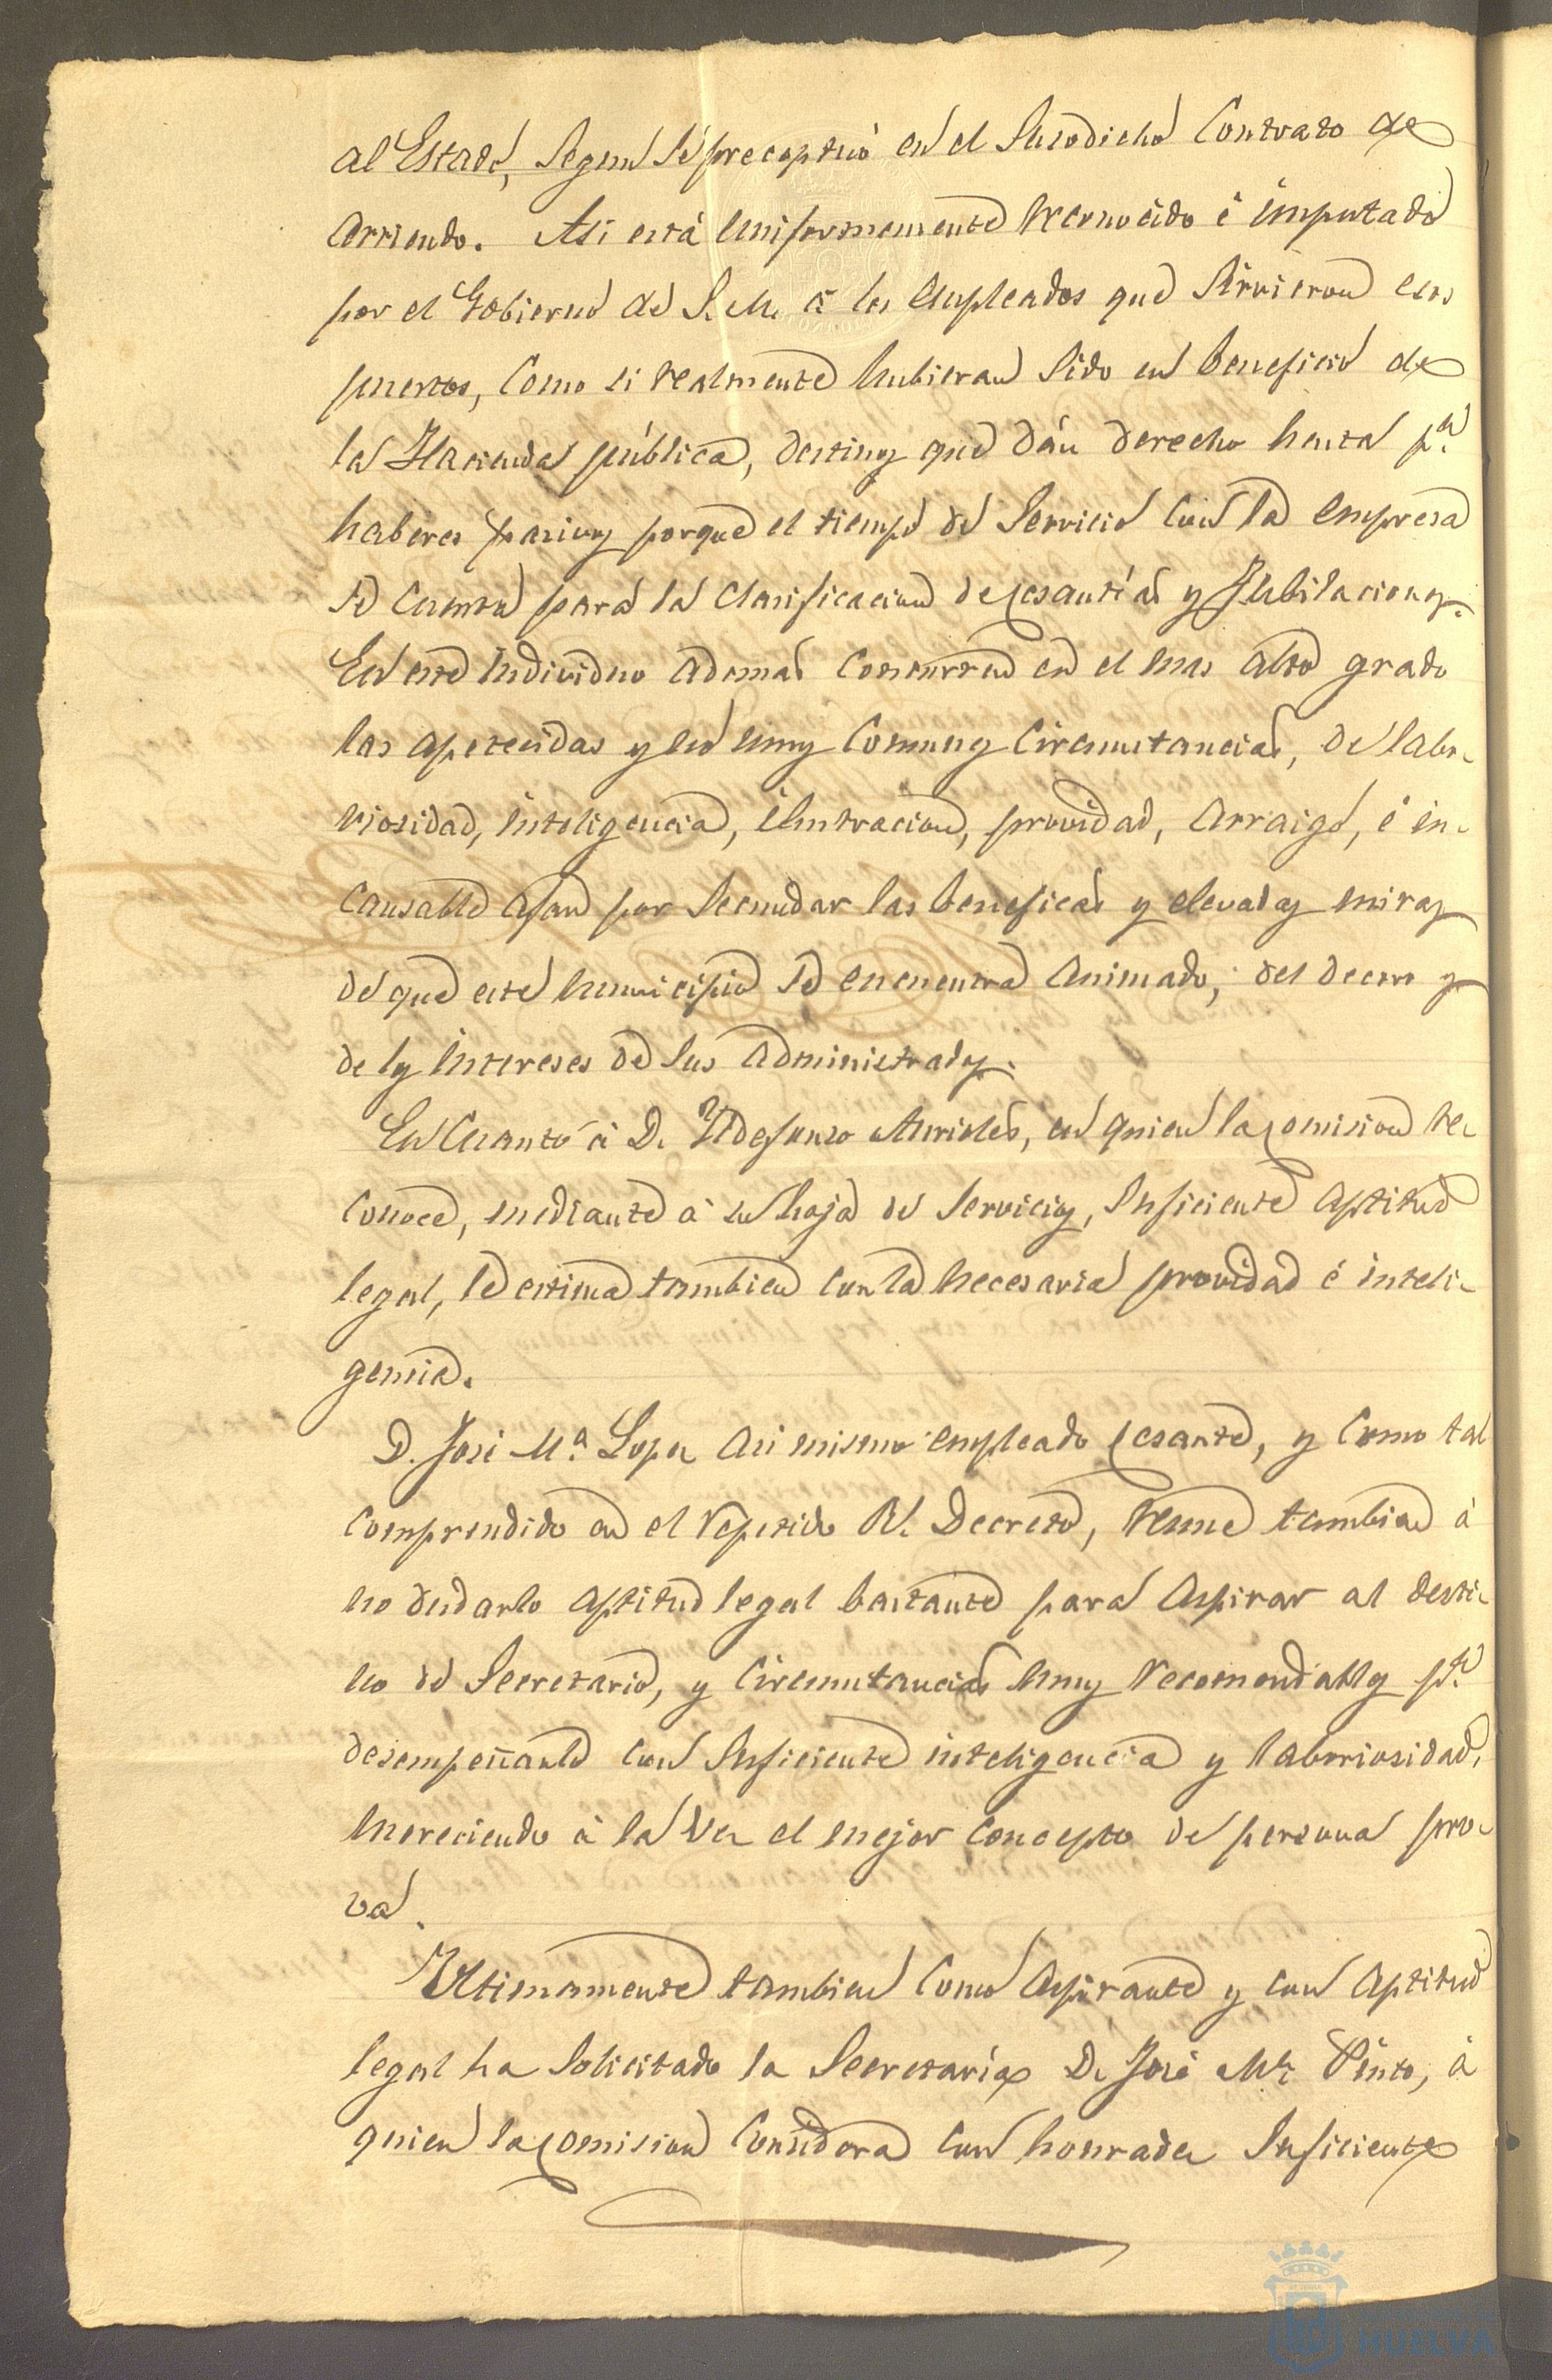 al Estado, segun se preceptuó en el susodicho Contrato de
arriendo. Asi está uniformemente reconocido é imputado
por el Gobierno de S. M. á los empleados que sirvieron esos
puertos, como si realmente hubieran sido en beneficio de
la Hacienda pública, destinos que dán derecho hasta p.ª
haberes pasivos porque el tiempo de servicio con la empresa
se cuenta para la clasificacion de cesantías y jubilaciones.
En este individuo ademas concurren en el mas alto grado
las apetecidas y no muy comunes circunstancias, de labo-
riosidad, inteligencia, ilustracion, providad, arraigo, é in-
cansable afan por secundar las beneficas y elevadas miras
de que este municipio se encuentra animado, del decoro y
de los intereses de sus administrados.
En cuanto á D. Yldefonso, en quien la comision re-
conoce, mediante á su hoja de servicios, suficiente aptitud
legal, le estima tambien con la necesaria providad é inteli-
gencia.
D. José M.ª Lopez asi mismo empleado cesante, y como tal
comprendido en el repetido Rl. Decreto, reune tambien á
no dudarlo aptitud legal bastante para aspirar al desti-
no de Secretario, y circunstancias muy recomendables p.ª
desempeñarlo con suficiente inteligencia y laboriosidad,
mereciendo á la vez el mejor concepto de persona pro-
va.
Ultimamente tambien como aspirante y con aptitud
legal ha solicitado la Secretaría D. José M.ª Pinto, á
quien la comision considera con honradez suficiente
HUELVA